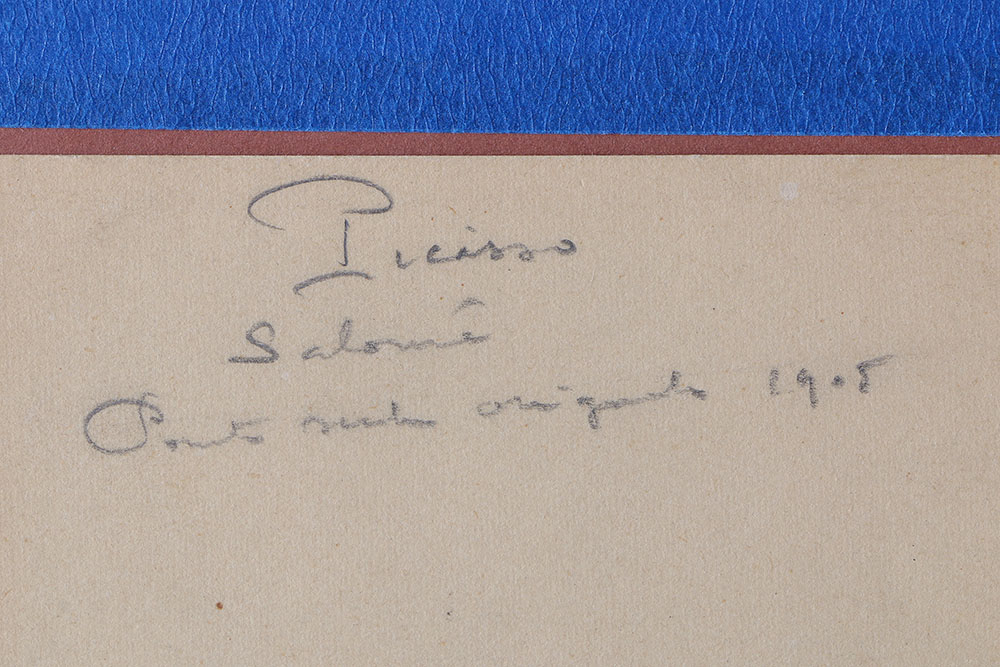 Picasso
Salomé
Pointe sèche originale 1905